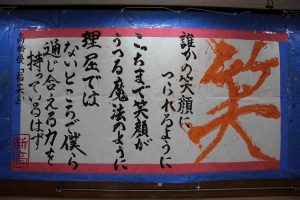 笑
誰かの笑顔に
つられるように
こっちまで笑顔が
うつる魔法のように
理屈では
ないところで僕ら
通じ合える力を
持っているはず